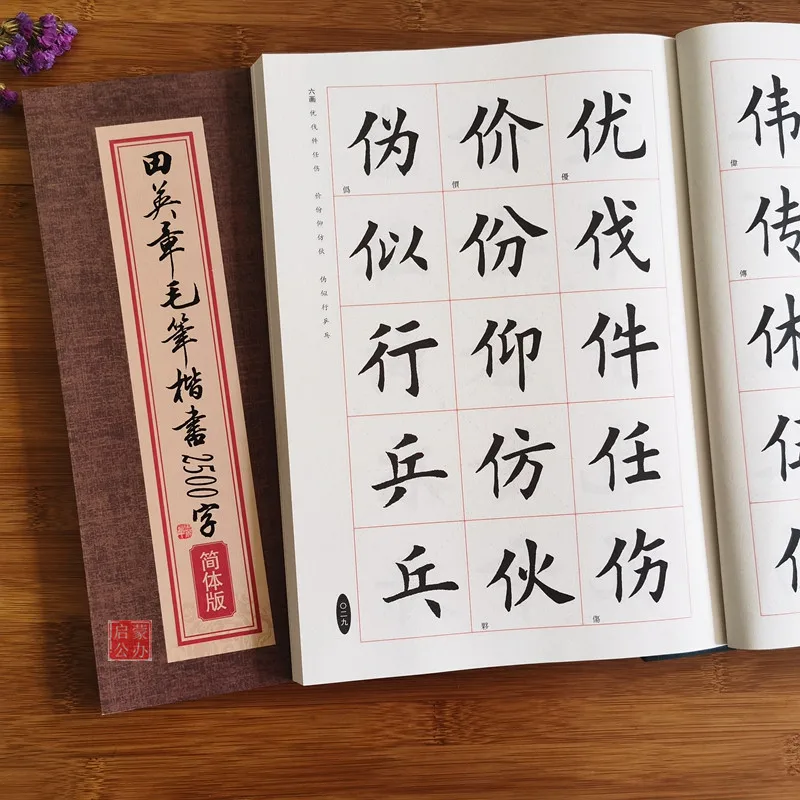 田英章毛筆楷書2500字
简体版
启蒙
公办
六画 优伐件任伤 价份仰仿伙 伪似行乒乓
优 優
伐
件
任
伤 傷
价 價
份
仰
仿
伙 夥
伪 僞
似
行
乒
乓
〇二九
伟 偉
传 傳
休
伍